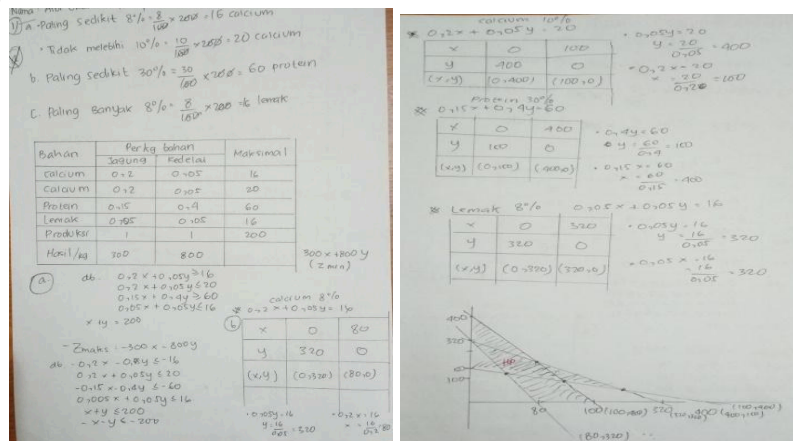 Nama:
1) a. Paling sedikit 8% = 8/100 × 200 = 16 calcium
• Tidak melebihi 10% = 10/100 × 200 = 20 calcium
b. Paling sedikit 30% = 30/100 × 200 = 60 protein
C. Paling banyak 8% = 8/100 × 200 = 16 lemak
Bahan Per kg bahan Maksimal
Jagung Kedelai
Calcium 0,2 0,05 16
Calcium 0,2 0,05 20
Protein 0,15 0,4 60
Lemak 0,05 0,05 16
Produksi 1 1 200
Hasil/kg 300 800
300x + 800y
(Z min)
a. db. 0,2x + 0,05y ≥ 16
0,2x + 0,05y ≤ 20
0,15x + 0,4y ≥ 60
0,05x + 0,05y ≤ 16
x + y = 200
- Zmaks = -300x - 800y
db -0,2x - 0,8y ≤ -16
0,2x + 0,05y ≤ 20
-0,15x - 0,4y ≤ -60
0,005x + 0,05y ≤ 16
x + y ≤ 200
- x - y ≤ -200
b. calcium 8%
0,2x + 0,05y = 16
x 0 80
y 320 0
(x,y) (0,320) (80,0)
• 0,05y = 16
y = 16/0,05 = 320
• 0,2x = 16
x = 16/0,2 = 80
calcium 10%
0,2x + 0,05y = 20
x 0 100
y 400 0
(x,y) (0,400) (100,0)
• 0,05y = 20
y = 20/0,05 = 400
• 0,2x = 20
x = 20/0,2 = 100
Protein 30%
0,15x + 0,4y = 60
x 0 400
y 100 0
(x,y) (0,100) (400,0)
• 0,4y = 60
y = 60/0,4 = 100
• 0,15x = 60
x = 60/0,15 = 400
Lemak 8% 0,05x + 0,05y = 16
x 0 320
y 320 0
(x,y) (0,320) (320,0)
• 0,05y = 16
y = 16/0,05 = 320
• 0,05x = 16
= 16/0,05 = 320
400
320
100
80 100 (100,400) 320 400 (400,100)
(80,320)